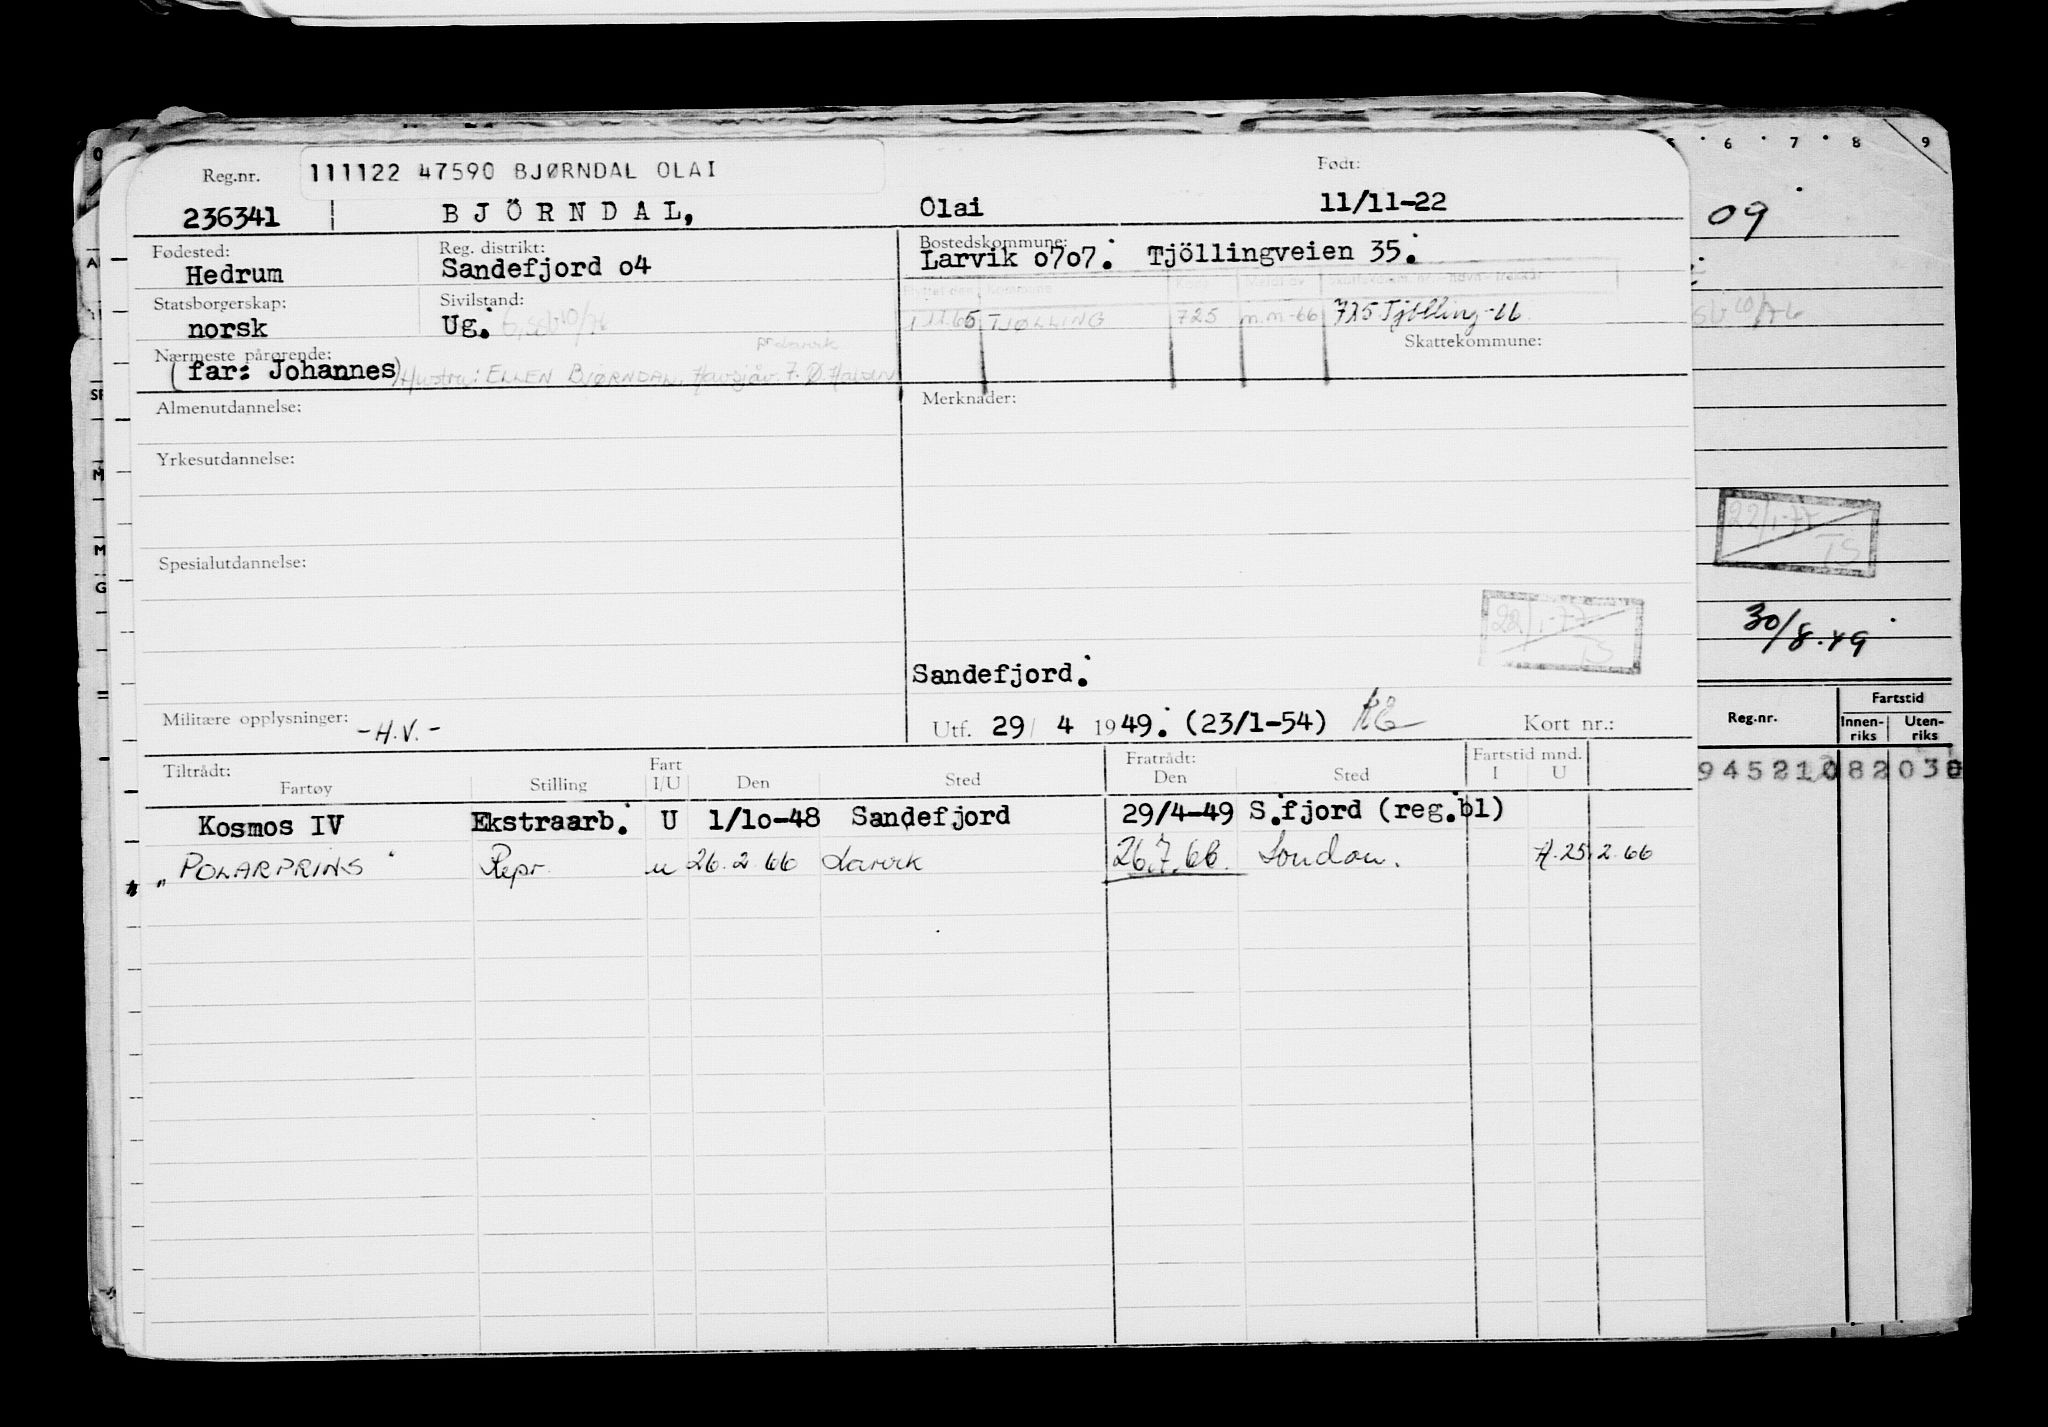 Reg.nr. 111122 47590 BJØRNDAL OLAI Født:
236341 BJÖRNDAL, Olai 11/11-22
Fødested: Reg. distrikt: Bostedskommune:
Hedrum Sandefjord o4 Larvik o7o7. Tjöllingveien 35.
Statsborgerskap: Sivilstand:
norsk Ug. TJØLLING 725 m.m-66 725 Tjölling-66
Nærmeste pårørende: Skattekommune:
(far: Johannes) Hustru: ELLEN BJØRNDAL,
Almenutdannelse: Merknader:
Yrkesutdannelse:
Spesialutdannelse:
22/1-77
TS
Sandefjord.
Militære opplysninger: -H.V.- Utf. 29/ 4 1949. (23/1-54) Kort nr.:
Tiltrådt: Fart Fratrådt: Fartstid mnd.
Fartøy Stilling I/U Den Sted Den Sted I U
Kosmos IV Ekstraarb. U 1/1o-48 Sandefjord 29/4-49 S.fjord (reg.bl)
"POLARPRINS" Repr. u 26.2 66 Larvik 26.7.66. London. A.25.2.66
6 7 8 9
09
22/1-77
TS
30/8.49
Reg.nr. Fartstid
Innen-riks Uten-riks
A
M
M
G